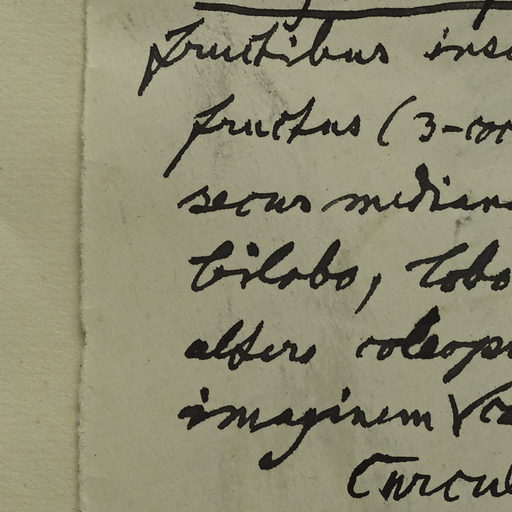 fructibus ins
fructus (3-coc
secus median
bilobo, lobo
altero coleop
imaginem
Curcul